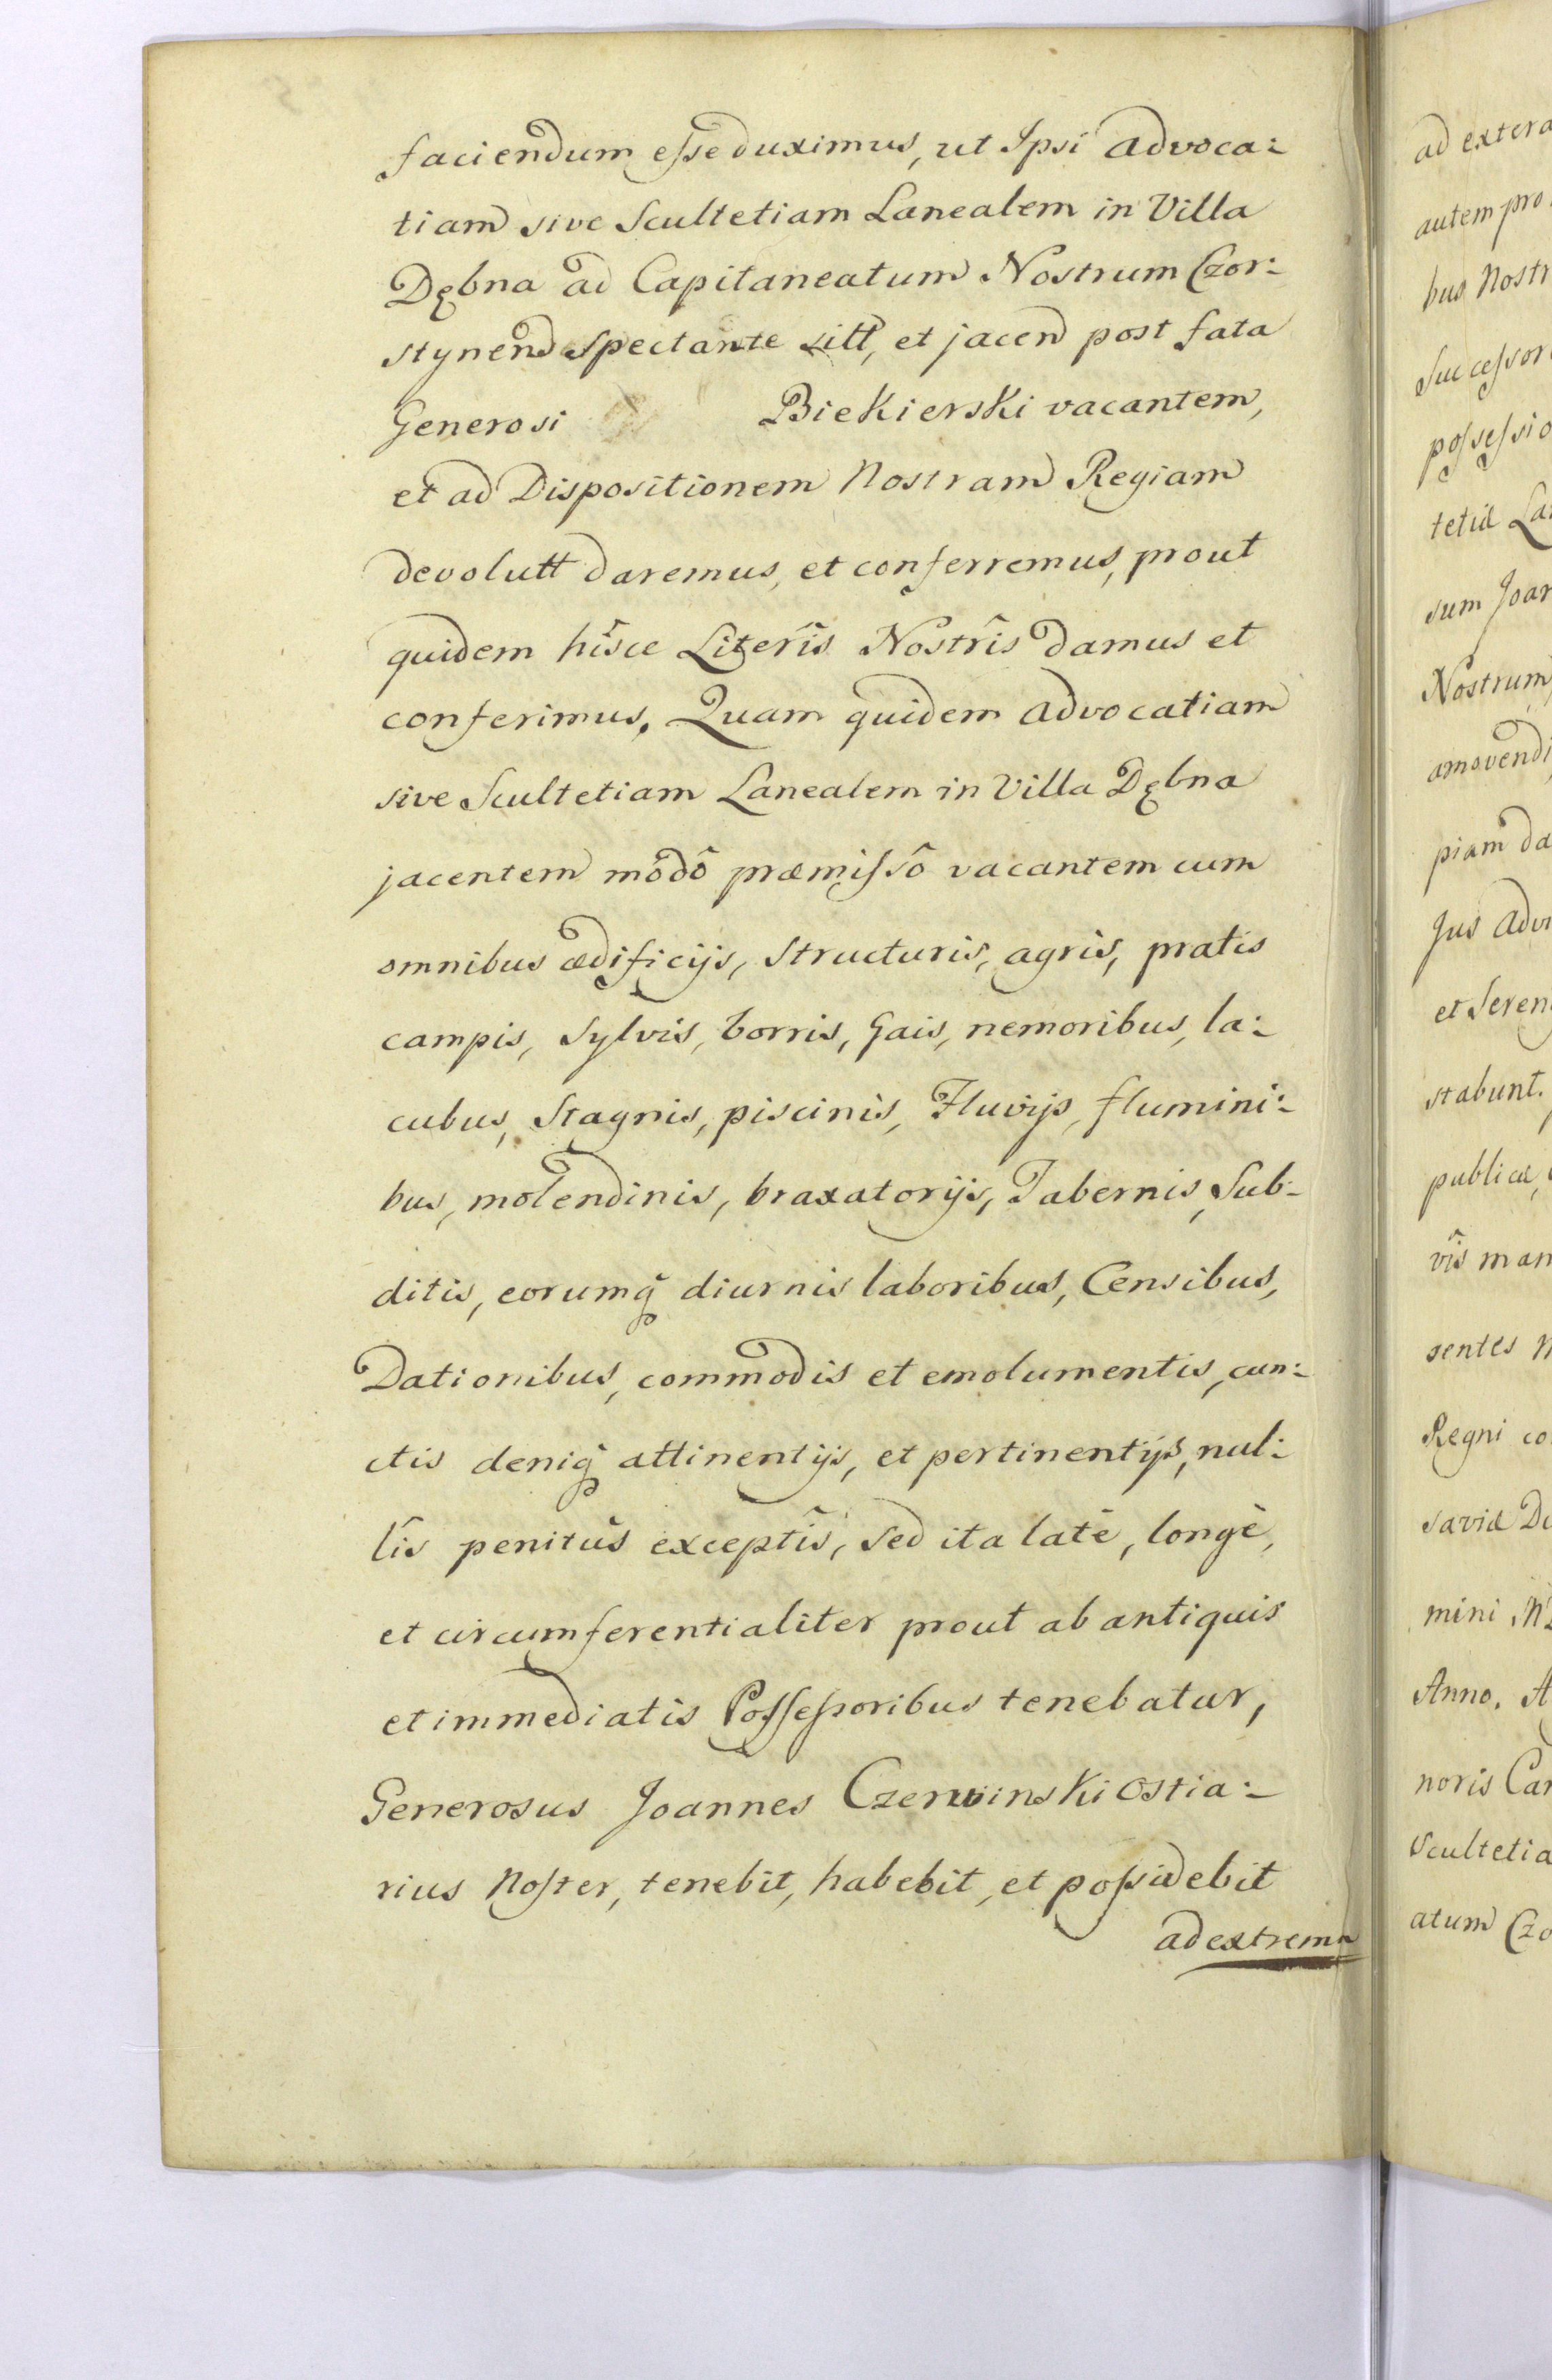 faciendum esse duximus, ut Ipsi Advoca:
tiam sive Scultetiam Lanealem in Villa
Dębna ad Capitaneatum Nostrum Czor:
stynend spectante sitt, et jacend post fata
Generosi Biekierski vacantem,
et ad Dispositionem Nostram Regiam
devolutt daremus, et conferremus, prout
quidem hîsce Literîs Nostrîs damus et
conferimus. Quam quidem Advocatiam
sive Scultetiam Lanealem in Villa Dębna
jacentem môdô præmissô vacantem cum
omnibus ædificijs, structuris, agris, pratis
campis, Sylvis, borris, Gais, nemoribus, la:
cubus, Stagnis, piscinis, Fluvijs, flumini:
bus, molendinis, braxatorijs, Tabernis, Sub:
ditis, eorumq̃ diurnis laboribus, Censibus,
Dationibus, commodis et emolumentis, cun:
ctis deniq̃ attinentijs, et pertinentijs, nul:
lîs penitùs exceptîs, sed ita latè, longè,
et circumferentialiter prout ab antiquis
et immediatis Possessoribus tenebatur,
Generosus Joannes Czerwinski Ostia:
rius Noster, tenebit, habebit, et possidebit
ad extrema
ad extera
autem pro
bus Nostr
Successor
possessio
tetiæ La
sum Joan
Nostrum
amovendi
piam da
Jus Adv
et Seren
stabunt.
publicæ,
vîs man
sentes
Regni co
saviæ Di
mini M
Anno. A
noris Can
Scultetia
atum Czo